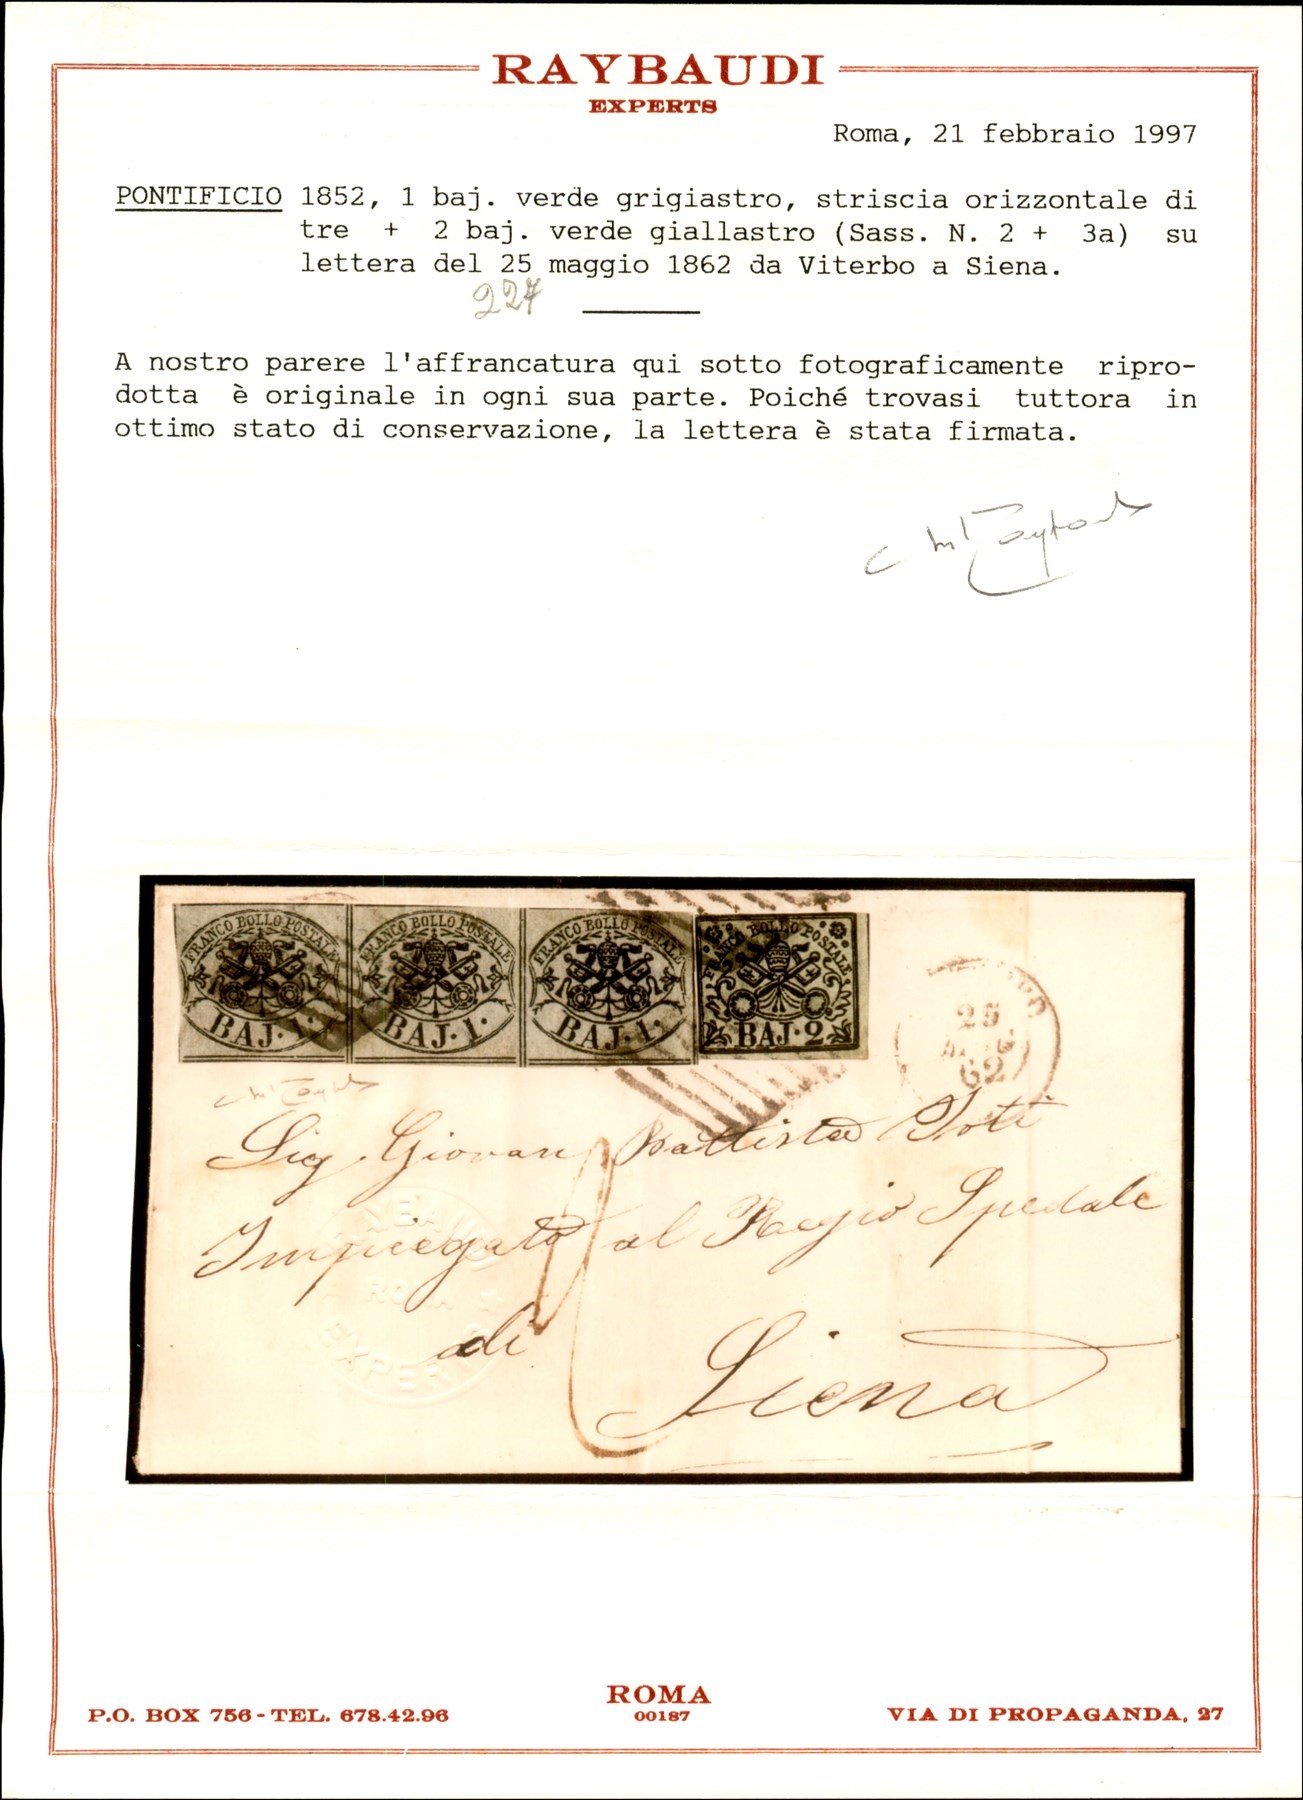 RAYBAUDI
EXPERTS
Roma, 21 febbraio 1997
PONTIFICIO 1852, 1 baj. verde grigiastro, striscia orizzontale di
tre + 2 baj. verde giallastro (Sass. N. 2 + 3a) su
lettera del 25 maggio 1862 da Viterbo a Siena.
227
A nostro parere l'affrancatura qui sotto fotograficamente ripro-
dotta è originale in ogni sua parte. Poiché trovasi tuttora in
ottimo stato di conservazione, la lettera è stata firmata.
FRANCO BOLLO POSTALE
BAJ. 1.
FRANCO BOLLO POSTALE
BAJ. 1.
FRANCO BOLLO POSTALE
BAJ. 1.
FRANCO BOLLO POSTALE
BAJ. 2
25
62
Sig. Giovan Battista
Impiegato al Regio Spedale
di
Siena
ROMA
EXPERTS
ROMA
00187
P.O. BOX 756 - TEL. 678.42.96
VIA DI PROPAGANDA, 27